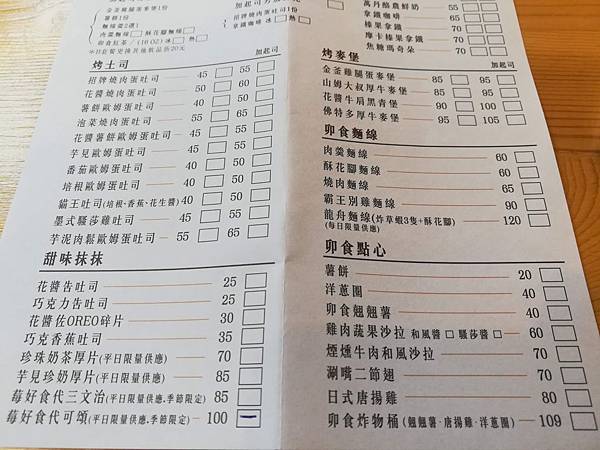 金釜雞腿蛋麥堡1份
薯餅1份
麵線羹2選1
肉羹麵線 酥花腳麵線
卵食紅茶/(16OZ)冰 熱
平日套餐更換其他飲品折20元
烤土司 加起司
招牌燒肉蛋吐司 45 55
花醬燒肉蛋吐司 45 55
薯餅歐姆蛋吐司 40 50
泡菜燒肉蛋吐司 55 65
花醬薯餅歐姆蛋吐司 40 50
芋見歐姆蛋吐司 40 50
番茄歐姆蛋吐司 40 50
培根歐姆蛋吐司 40 50
貓王吐司(培根·香蕉·花生醬) 40 50
墨式騷莎雞吐司 45 55
芋泥肉鬆歐姆蛋吐司 55 65
甜味抹抹
花醬告吐司 25
巧克力告吐司 25
花醬佐OREO碎片 30
巧克香蕉吐司 35
珍珠奶茶厚片(平日限量供應) 70
芋見珍奶厚片(平日限量供應) 85
莓好食代三文治(平日限量供應,季節限定) 85
莓好食代可頌(平日限量供應,季節限定) 100
招牌燒肉蛋吐司1份
拿鐵咖啡 冰 熱
萬丹酪農鮮奶 50
拿鐵咖啡 65
榛果拿鐵 70
摩卡榛果拿鐵 70
焦糖瑪奇朵 70
烤麥堡 加起司
金釜雞腿蛋麥堡 85 95
山姆大叔厚牛麥堡 85 95
花醬牛肩黑青堡 90 100
佛特多厚牛麥堡 95 105
卵食麵線
肉羹麵線 60
酥花腳麵線 60
燒肉麵線 65
霸王別雞麵線 90
龍舟麵線(炸草蝦3隻+酥花腳) 120
(每日限量供應)
卵食點心
薯餅 20
洋蔥圈 40
卵食翹翹薯 40
雞肉蔬果沙拉 和風醬 騷莎醬 60
煙燻牛肉和風沙拉 70
涮嘴二節翅 70
日式唐揚雞 80
卵食炸物桶(翹翹薯·唐揚雞·洋蔥圈) 109